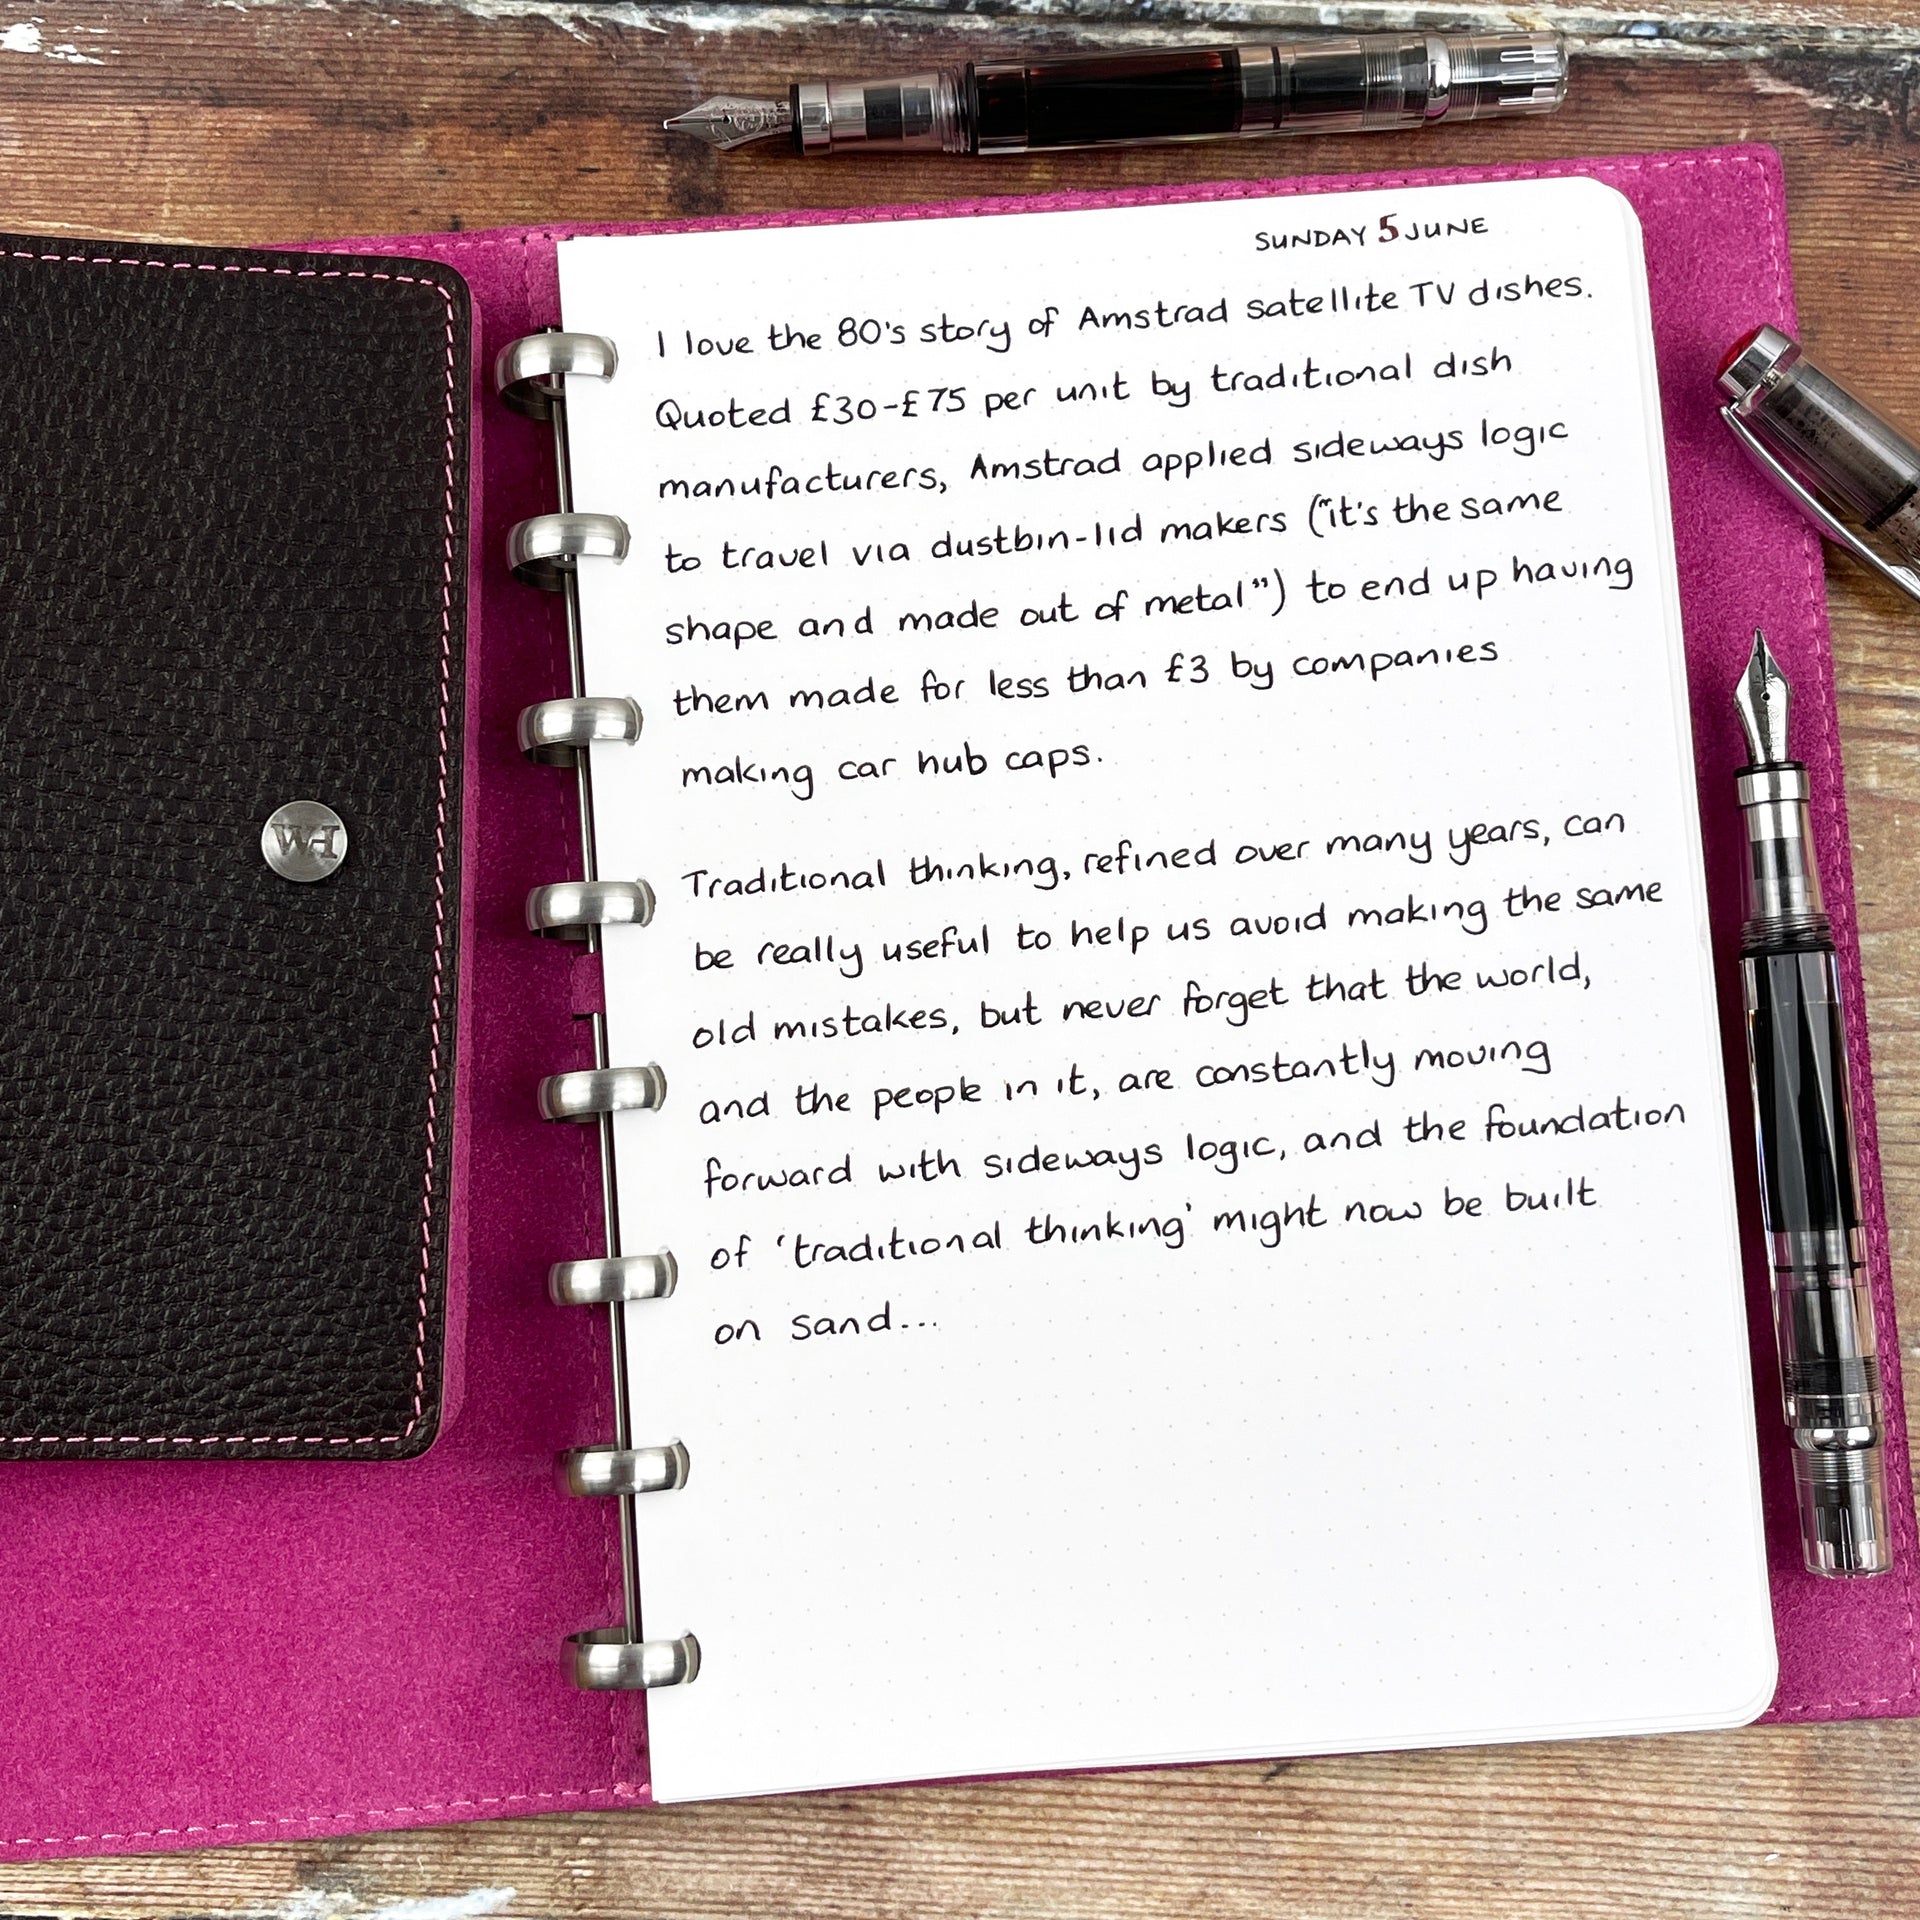 SUNDAY 5 JUNE
I love the 80's story of Amstrad satellite TV dishes.
Quoted £30-£75 per unit by traditional dish
manufacturers, Amstrad applied sideways logic
to travel via dustbin-lid makers ("it's the same
shape and made out of metal") to end up having
them made for less than £3 by companies
making car hub caps.
Traditional thinking, refined over many years, can
be really useful to help us avoid making the same
old mistakes, but never forget that the world,
and the people in it, are constantly moving
forward with sideways logic, and the foundation
of 'traditional thinking' might now be built
on sand...
WH